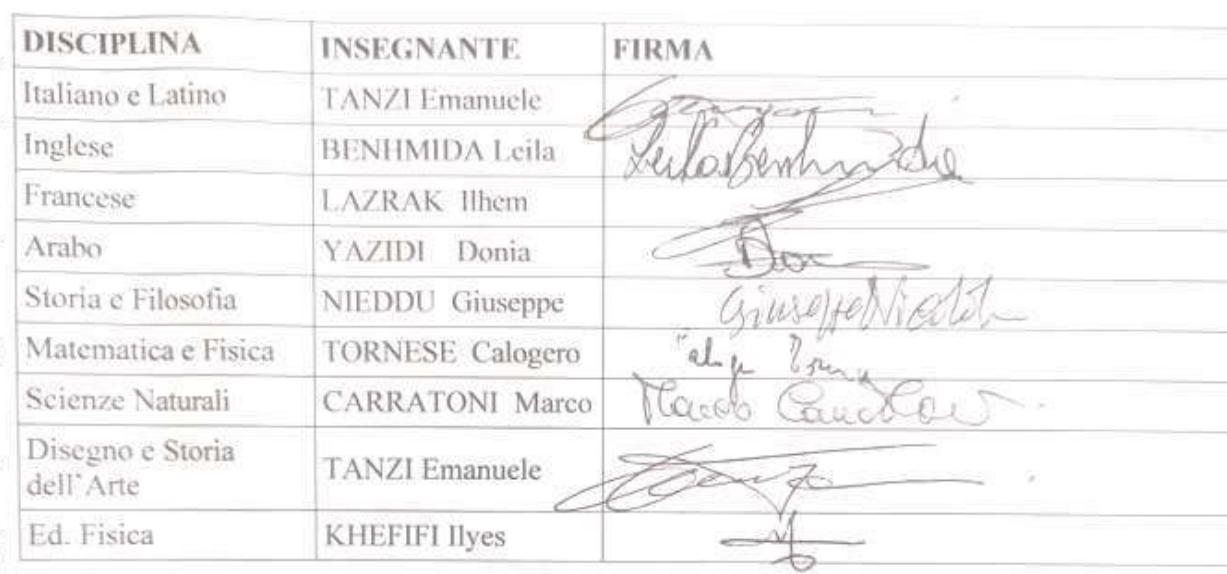 DISCIPLINA INSEGNANTE FIRMA
Italiano e Latino TANZI Emanuele
Inglese BENHMIDA Leila Leila Benhmida
Francese LAZRAK Ilhem
Arabo YAZIDI Donia
Storia e Filosofia NIEDDU Giuseppe Giuseppe Nieddu
Matematica e Fisica TORNESE Calogero
Scienze Naturali CARRATONI Marco Marco
Disegno e Storia
dell'Arte TANZI Emanuele
Ed. Fisica KHEFIFI Ilyes